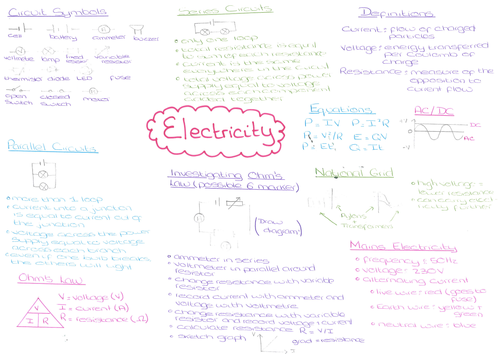 Circuit Symbols
cell
battery
ammeter
buzzer
voltmeter
lamp
fixed
resistor
variable
resistor
thermistor
diode
LED
fuse
open
switch
closed
switch
motor
Series Circuits
only one loop
total resistance is equal
to sum of each resistance
current is the same
everywhere in the circuit
added together
Definitions
Current: flow of charged
particles
Voltage: energy transferred
per Coulomb of
charge
Resistance: measure of the
opposition to
current flow
Electricity
Equations
P=IV P=I²R
P=V²/R E=QV
P=E/t Q=It
AC/DC
DC
AC
Parallel Circuits
more than 1 loop
current into a junction
is equal to current out of
the junction
voltage across the power
supply equal to voltage
across each branch
even if one bulb breaks
the others will light
Ohms Law
V
I R
V = voltage (V)
I = current (A)
R = resistance (Ω)
Investigating Ohm's
Law (possible 6 marker)
(Draw
diagram)
ammeter in series
voltmeter in parallel around
resistor
change resistance with variable
resistor
record current with ammeter and
voltage with voltmetre
change resistance with variable
resistor and record voltage + current
calculate resistance R = V/I
sketch graph
grad = resistance
National Grid
Pylons
Transformers
high voltage =
lower resistance
Mains Electricity
frequency: 50Hz
voltage: 230V
alternating current
live wire: red (goes to
fuse)
Earth wire: yellow +
green
neutral wire: blue